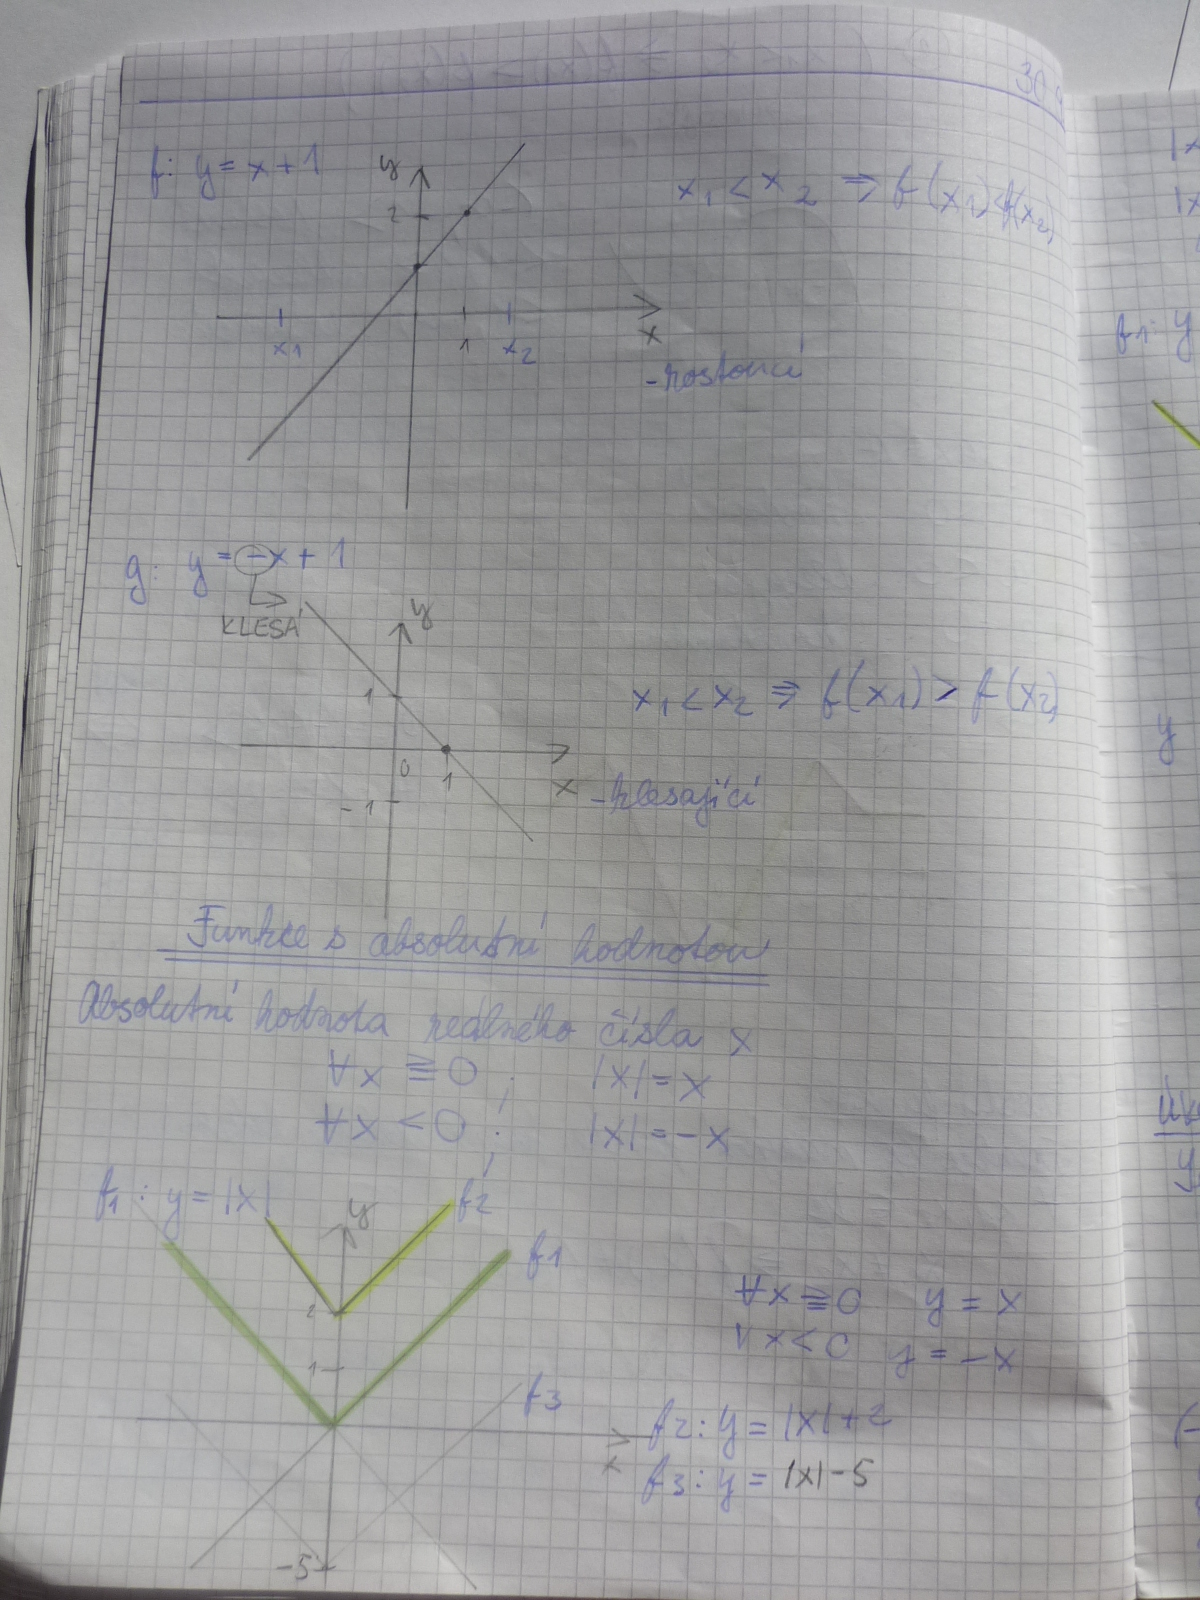 30.4
f: y = x + 1
y
2
x₁ < x₂ ⇒ f(x₁) < f(x₂)
x₁ 1 x₂ x
- rostoucí
g: y = -x + 1
KLESÁ
y
1
x₁ < x₂ ⇒ f(x₁) > f(x₂)
0 1 x
-1
- klesající
Funkce s absolutní hodnotou
Absolutní hodnota reálného čísla x
∀x ≧ 0 ; |x| = x
∀x < 0 ; |x| = -x
f₁ : y = |x|
y
f2
f1
2
1
∀x ≧ 0 y = x
∀x < 0 y = -x
f3
x
f₂: y = |x| + 2
f₃: y = |x| - 5
-5
f₁: y
y
y